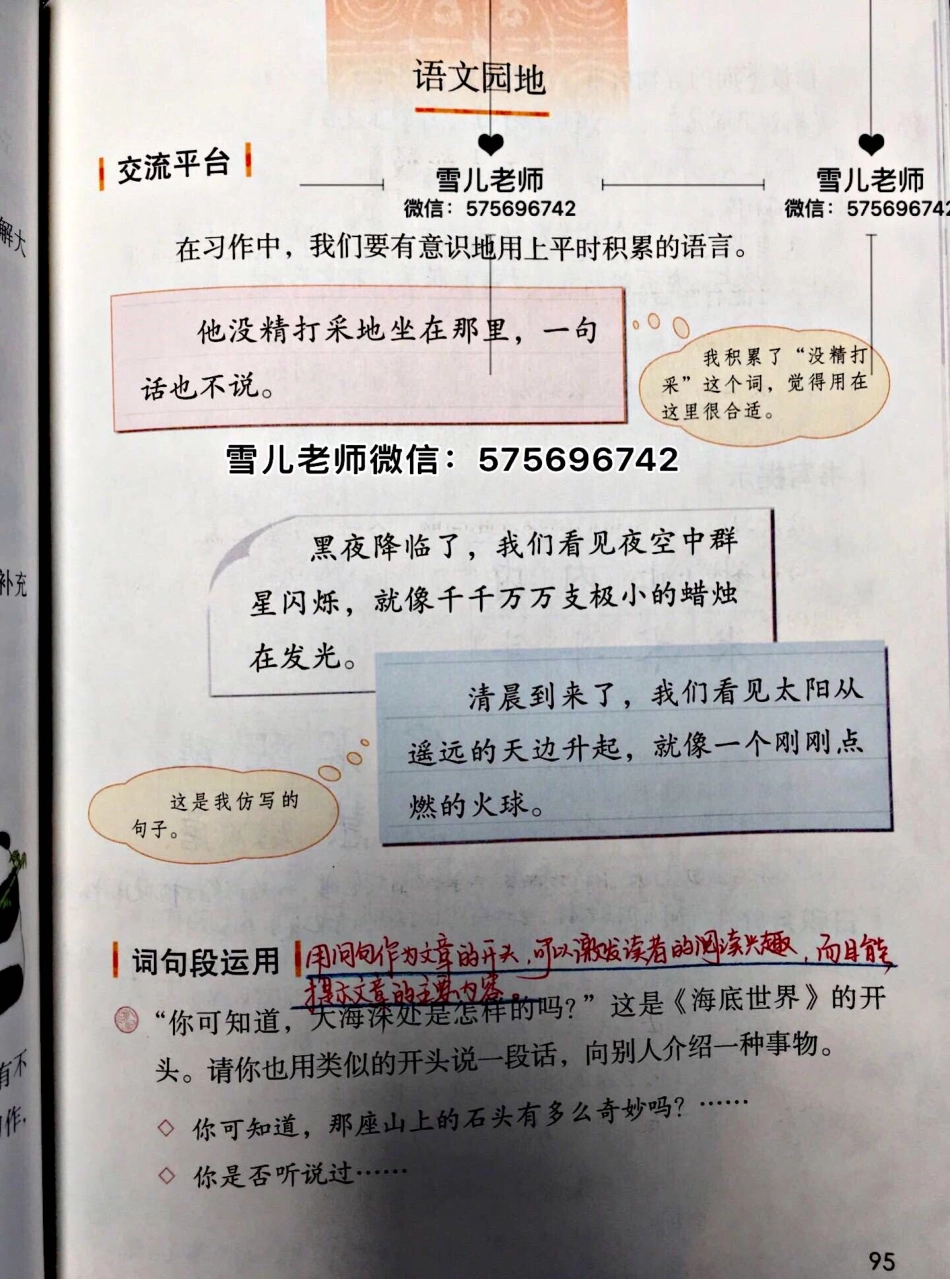 语文园地
交流平台
雪儿老师
微信：575696742
雪儿老师
微信：57569674
在习作中，我们要有意识地用上平时积累的语言。
他没精打采地坐在那里，一句
话也不说。
我积累了“没精打
采”这个词，觉得用在
这里很合适。
雪儿老师微信：575696742
黑夜降临了，我们看见夜空中群
星闪烁，就像千千万万支极小的蜡烛
在发光。
清晨到来了，我们看见太阳从
遥远的天边升起，就像一个刚刚点
燃的火球。
这是我仿写的
句子。
词句段运用
用问句作为文章的开头，可以激发读者的阅读兴趣，而且能
提示文章的主要内容。
“你可知道，大海深处是怎样的吗？”这是《海底世界》的开
头。请你也用类似的开头说一段话，向别人介绍一种事物。
◇ 你可知道，那座山上的石头有多么奇妙吗？……
◇ 你是否听说过……
95
解大
补充
有不
作，